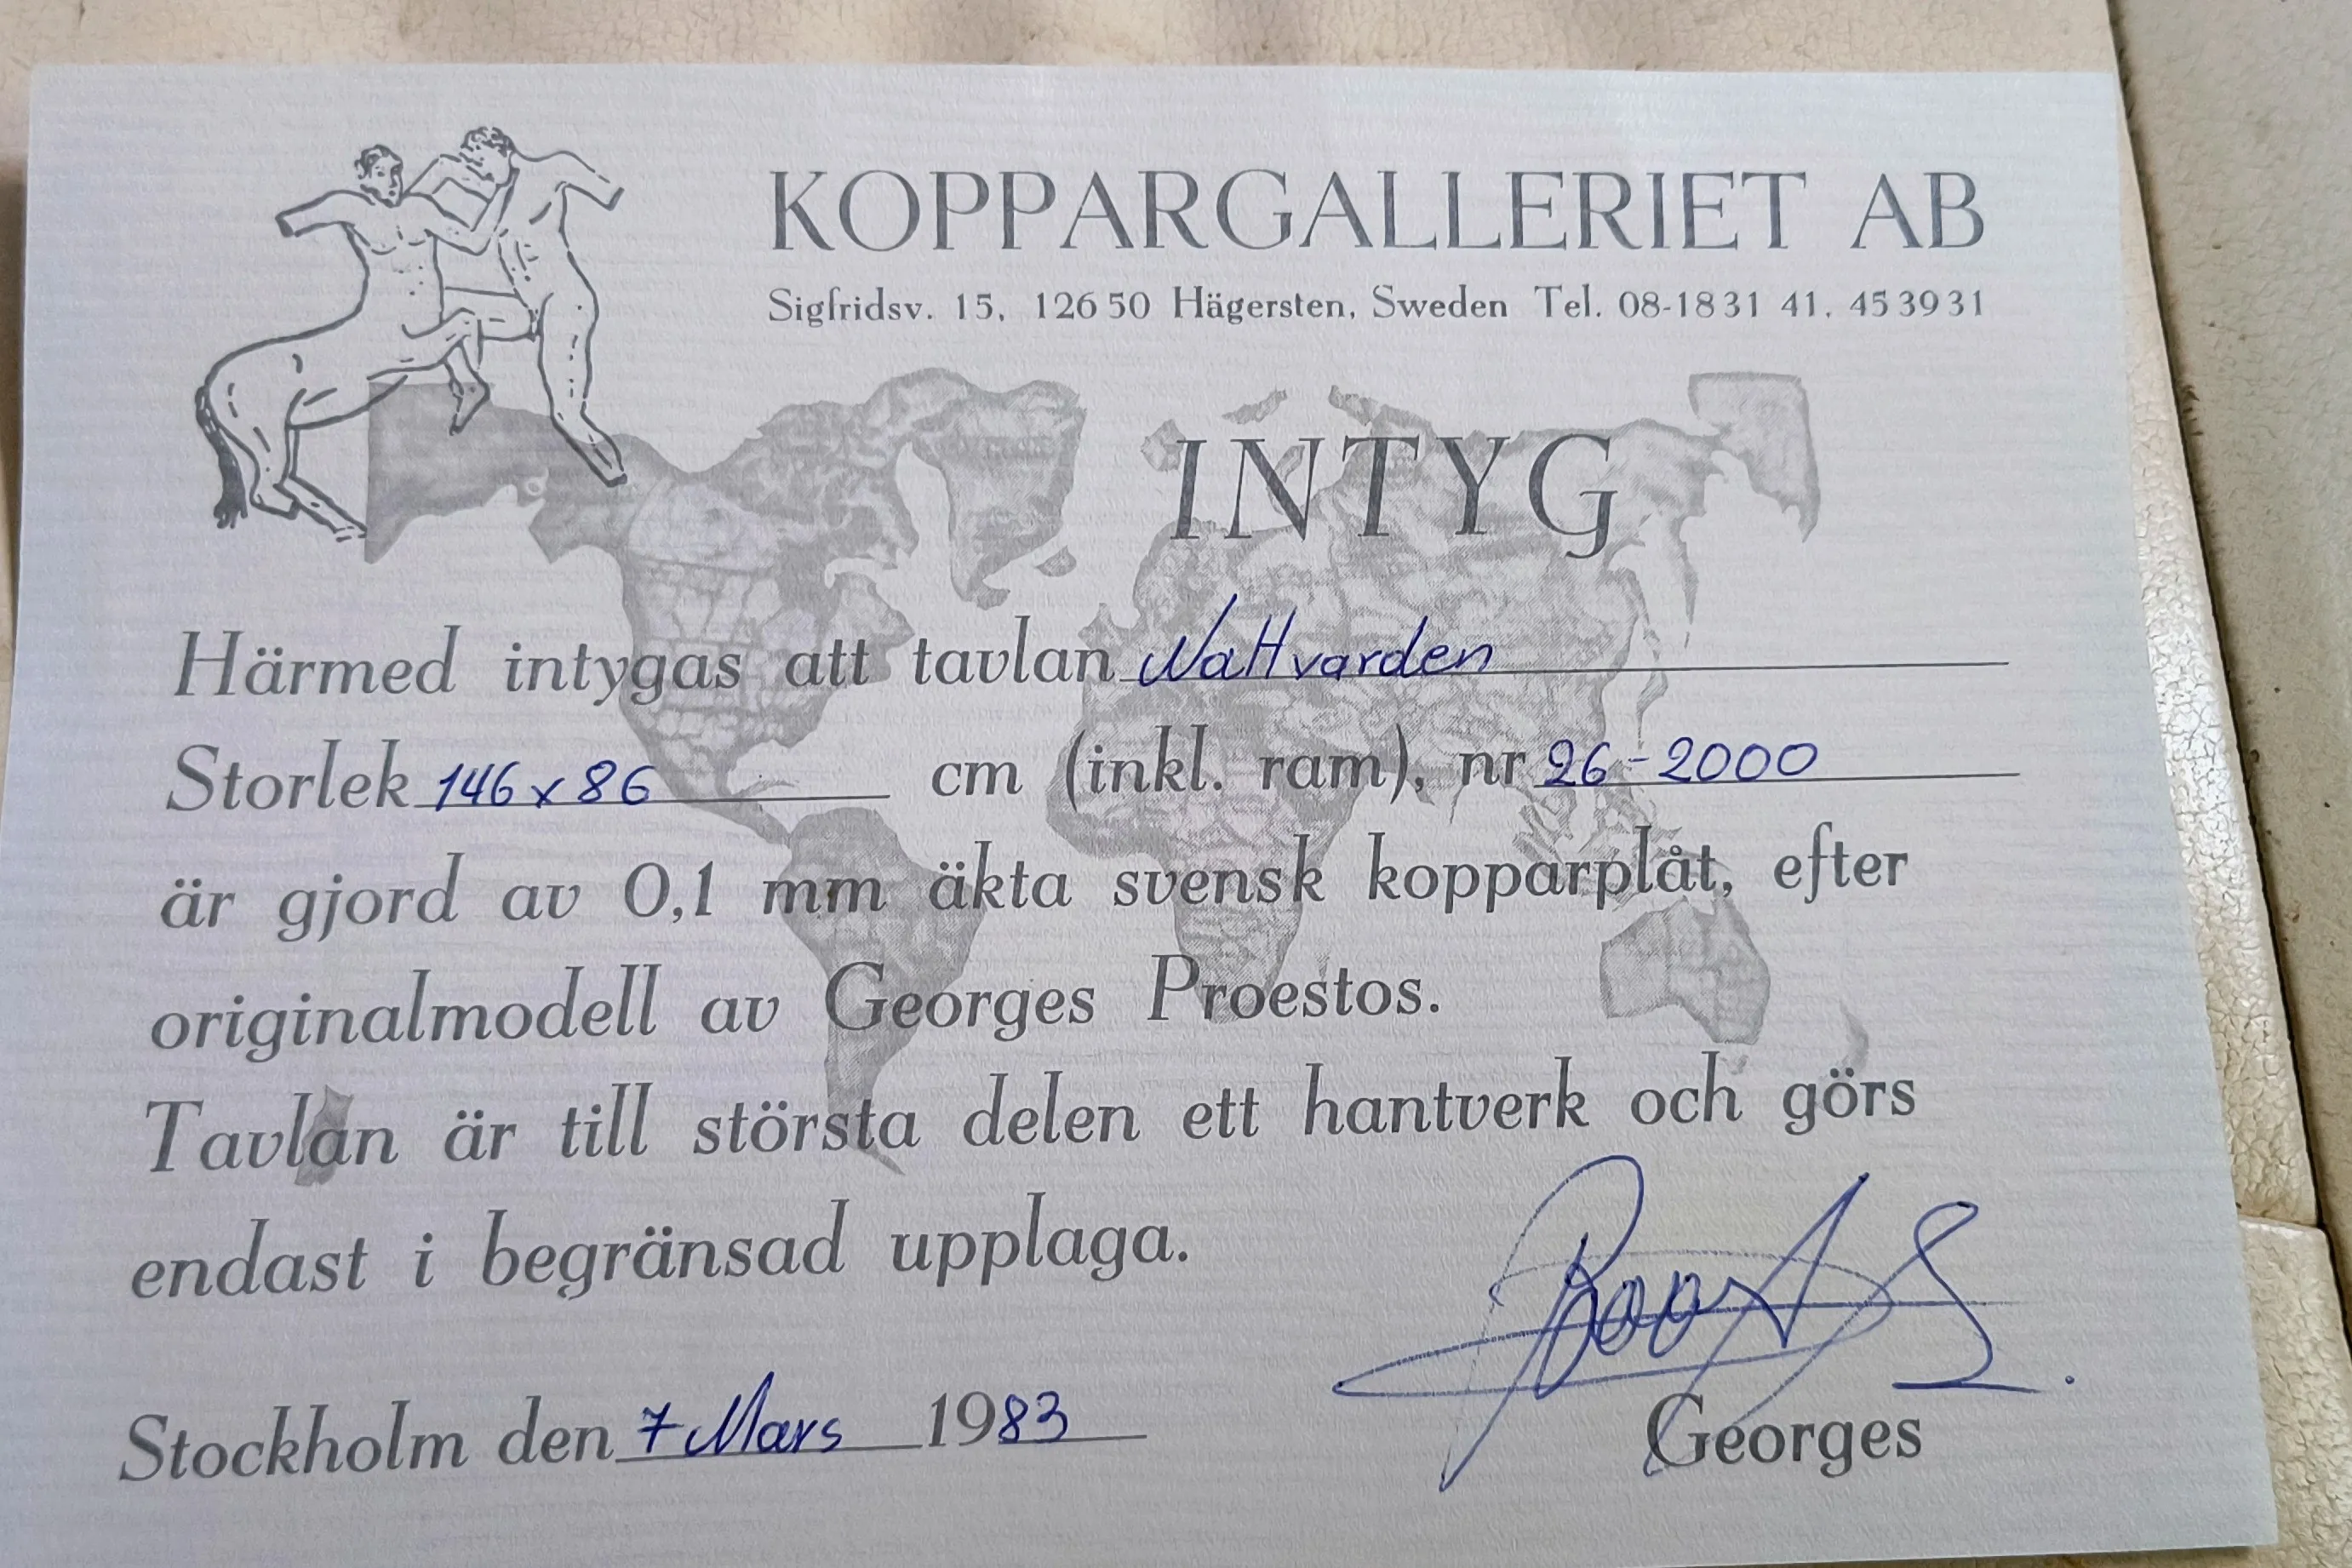 KOPPARGALLERIET AB
Sigfridsv. 15, 126 50 Hägersten, Sweden Tel. 08-18 31 41, 45 39 31
INTYG
Härmed intygas att tavlan Nattvarden
Storlek 146 x 86 cm (inkl. ram), nr 26-2000
är gjord av 0,1 mm äkta svensk kopparplåt, efter
originalmodell av Georges Proestos.
Tavlan är till största delen ett hantverk och görs
endast i begränsad upplaga.
Stockholm den 7 Mars 1983
Georges